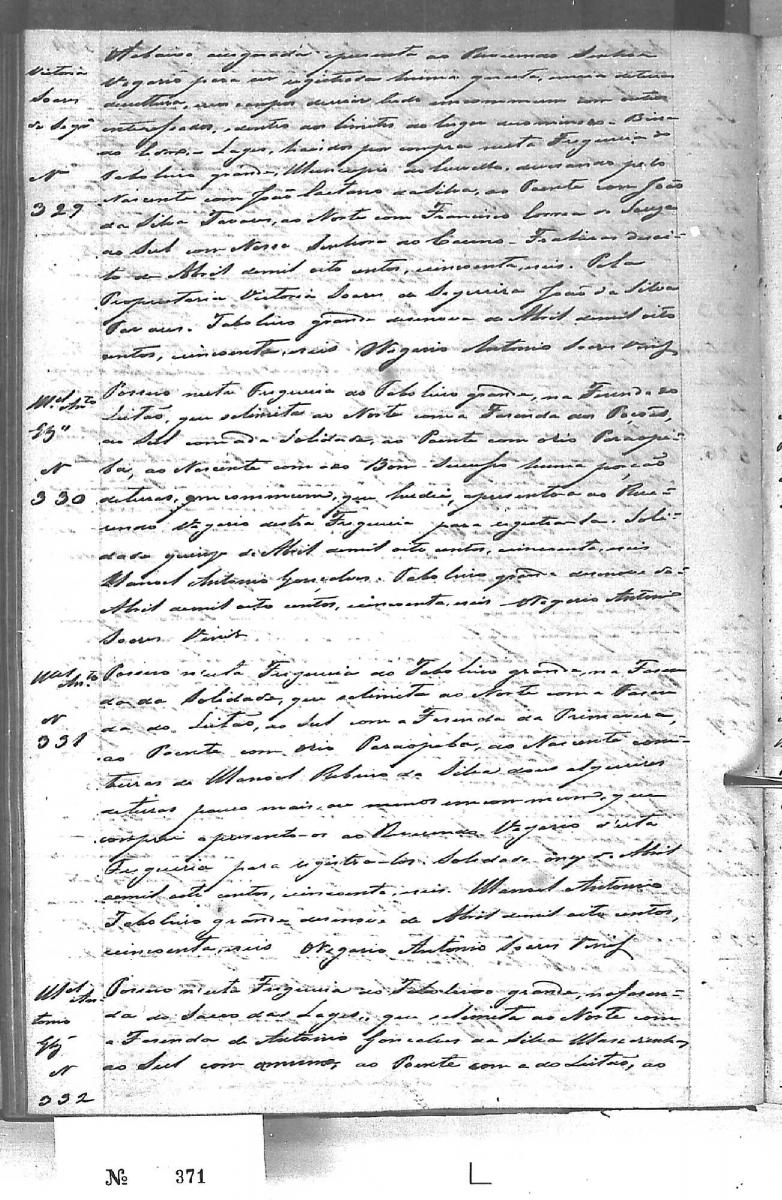 Victoria
Soares
de Seqrª
N
329
Abaixo assignada apresenta ao Reverendo Senhor
Vigario para ser registrada huma quarta, e meia de terras
de cultura, e os campos de criar tudo em commum com outros
interessados, dentro dos limites do lugar denominado
Lages, havidos por compra nesta Freguesia do
Taboleiro grande, Municipio do Curvello, devisando pelo
Nascente com João Caetano da Silva, ao Poente com João
da Silva Tavares, ao Norte com Francisco Correa de Souza
ao Sul com Nossa Senhora do Carmo
to de Abril de mil oito centos, cincoenta, seis. Pela
Proprietaria Victoria Soares de Sequeira João da Silva
Tavares. Taboleiro grande desenove de Abril de mil oito
centos, cincoenta, seis Vigario Antonio Soares
Mel Anto
Glz
N
330
Possuo nesta Freguesia do Taboleiro grande, na Fazenda do
Leitão, que se limita ao Norte com a Fazenda dos Poções,
ao Sul com a da Solidade, ao Poente com o rio Paraope-
ba, ao Nascente com a do Bom Sucesso huma porção
de terras, em commum, que herdei, apresento-a ao Reve-
rendo Vigario desta Freguesia para registra-la. Soli-
dade quinze de Abril de mil oito centos, cincoenta, seis
Manoel Antonio Gonçalves. Taboleiro grande desenove de
Abril de mil oito centos, cincoenta, seis Vigario Antonio
Soares
Mel
Anto
N
331
Possuo n'esta Freguesia do Taboleiro grande, na Fasen
da da Solidade, que se limita ao Norte com a Fasen
da do Leitão, ao Sul com a Fasenda da Primavera,
ao Poente com o rio Paraopeba, ao Nascente com
terras de Manoel Ribeiro da Silva alqueires
de terras pouco mais, ou menos em commum, que
comprei apresento-os ao Reverendo Vigario d'esta
Freguesia para registra-los. Soledade onze de Abril
de mil oito centos, cincoenta, seis. Manoel Antonio
Taboleiro grande desenove de Abril de mil oito centos,
cincoenta, seis Vigario Antonio Soares
Mel An
tonio
Glz
N
332
Possuo n'esta Freguesia do Taboleiro grande, na fasen-
da do Sacco das Lages, que se limita ao Norte com
a Fasenda de Antonio Gonçalves da Silva Mascarenhas,
ao Sul com ao Poente com a do Leitão, ao
Nº 371
L